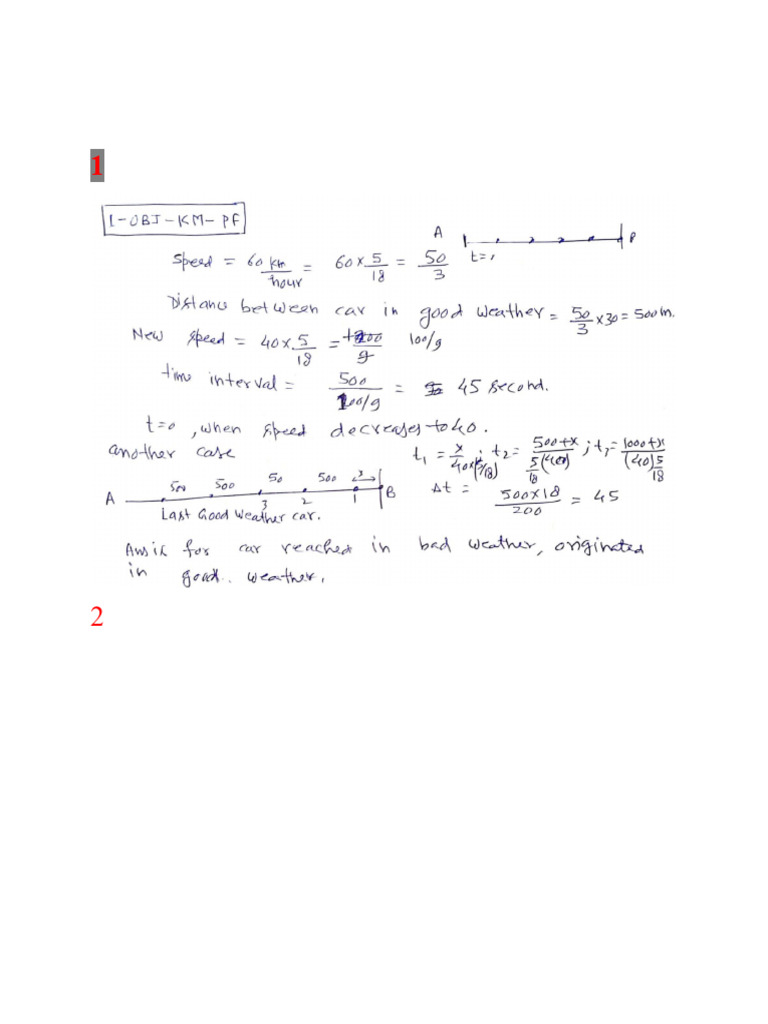 1
1-OBJ-KM-PF
A B
t=0
Speed = 60 km/hour = 60 × 5/18 = 50/3
Distans between car in good weather = 50/3 × 30 = 500m.
New speed = 40 × 5/18 = 100/9
time interval = 500/(100/9) = 45 second.
t=0, when speed decreases to 40.
another case
t₁ = x/(40×(5/18)); t₂ = (500+x)/(5/18(40)); t₃ = (1000+x)/((40)5/18)
A 500 500 50 500 x B
3 2 1
Δt = (500×18)/200 = 45
Last Good weather car.
Ans is for car reached in bad weather, originated
in good weather.
2